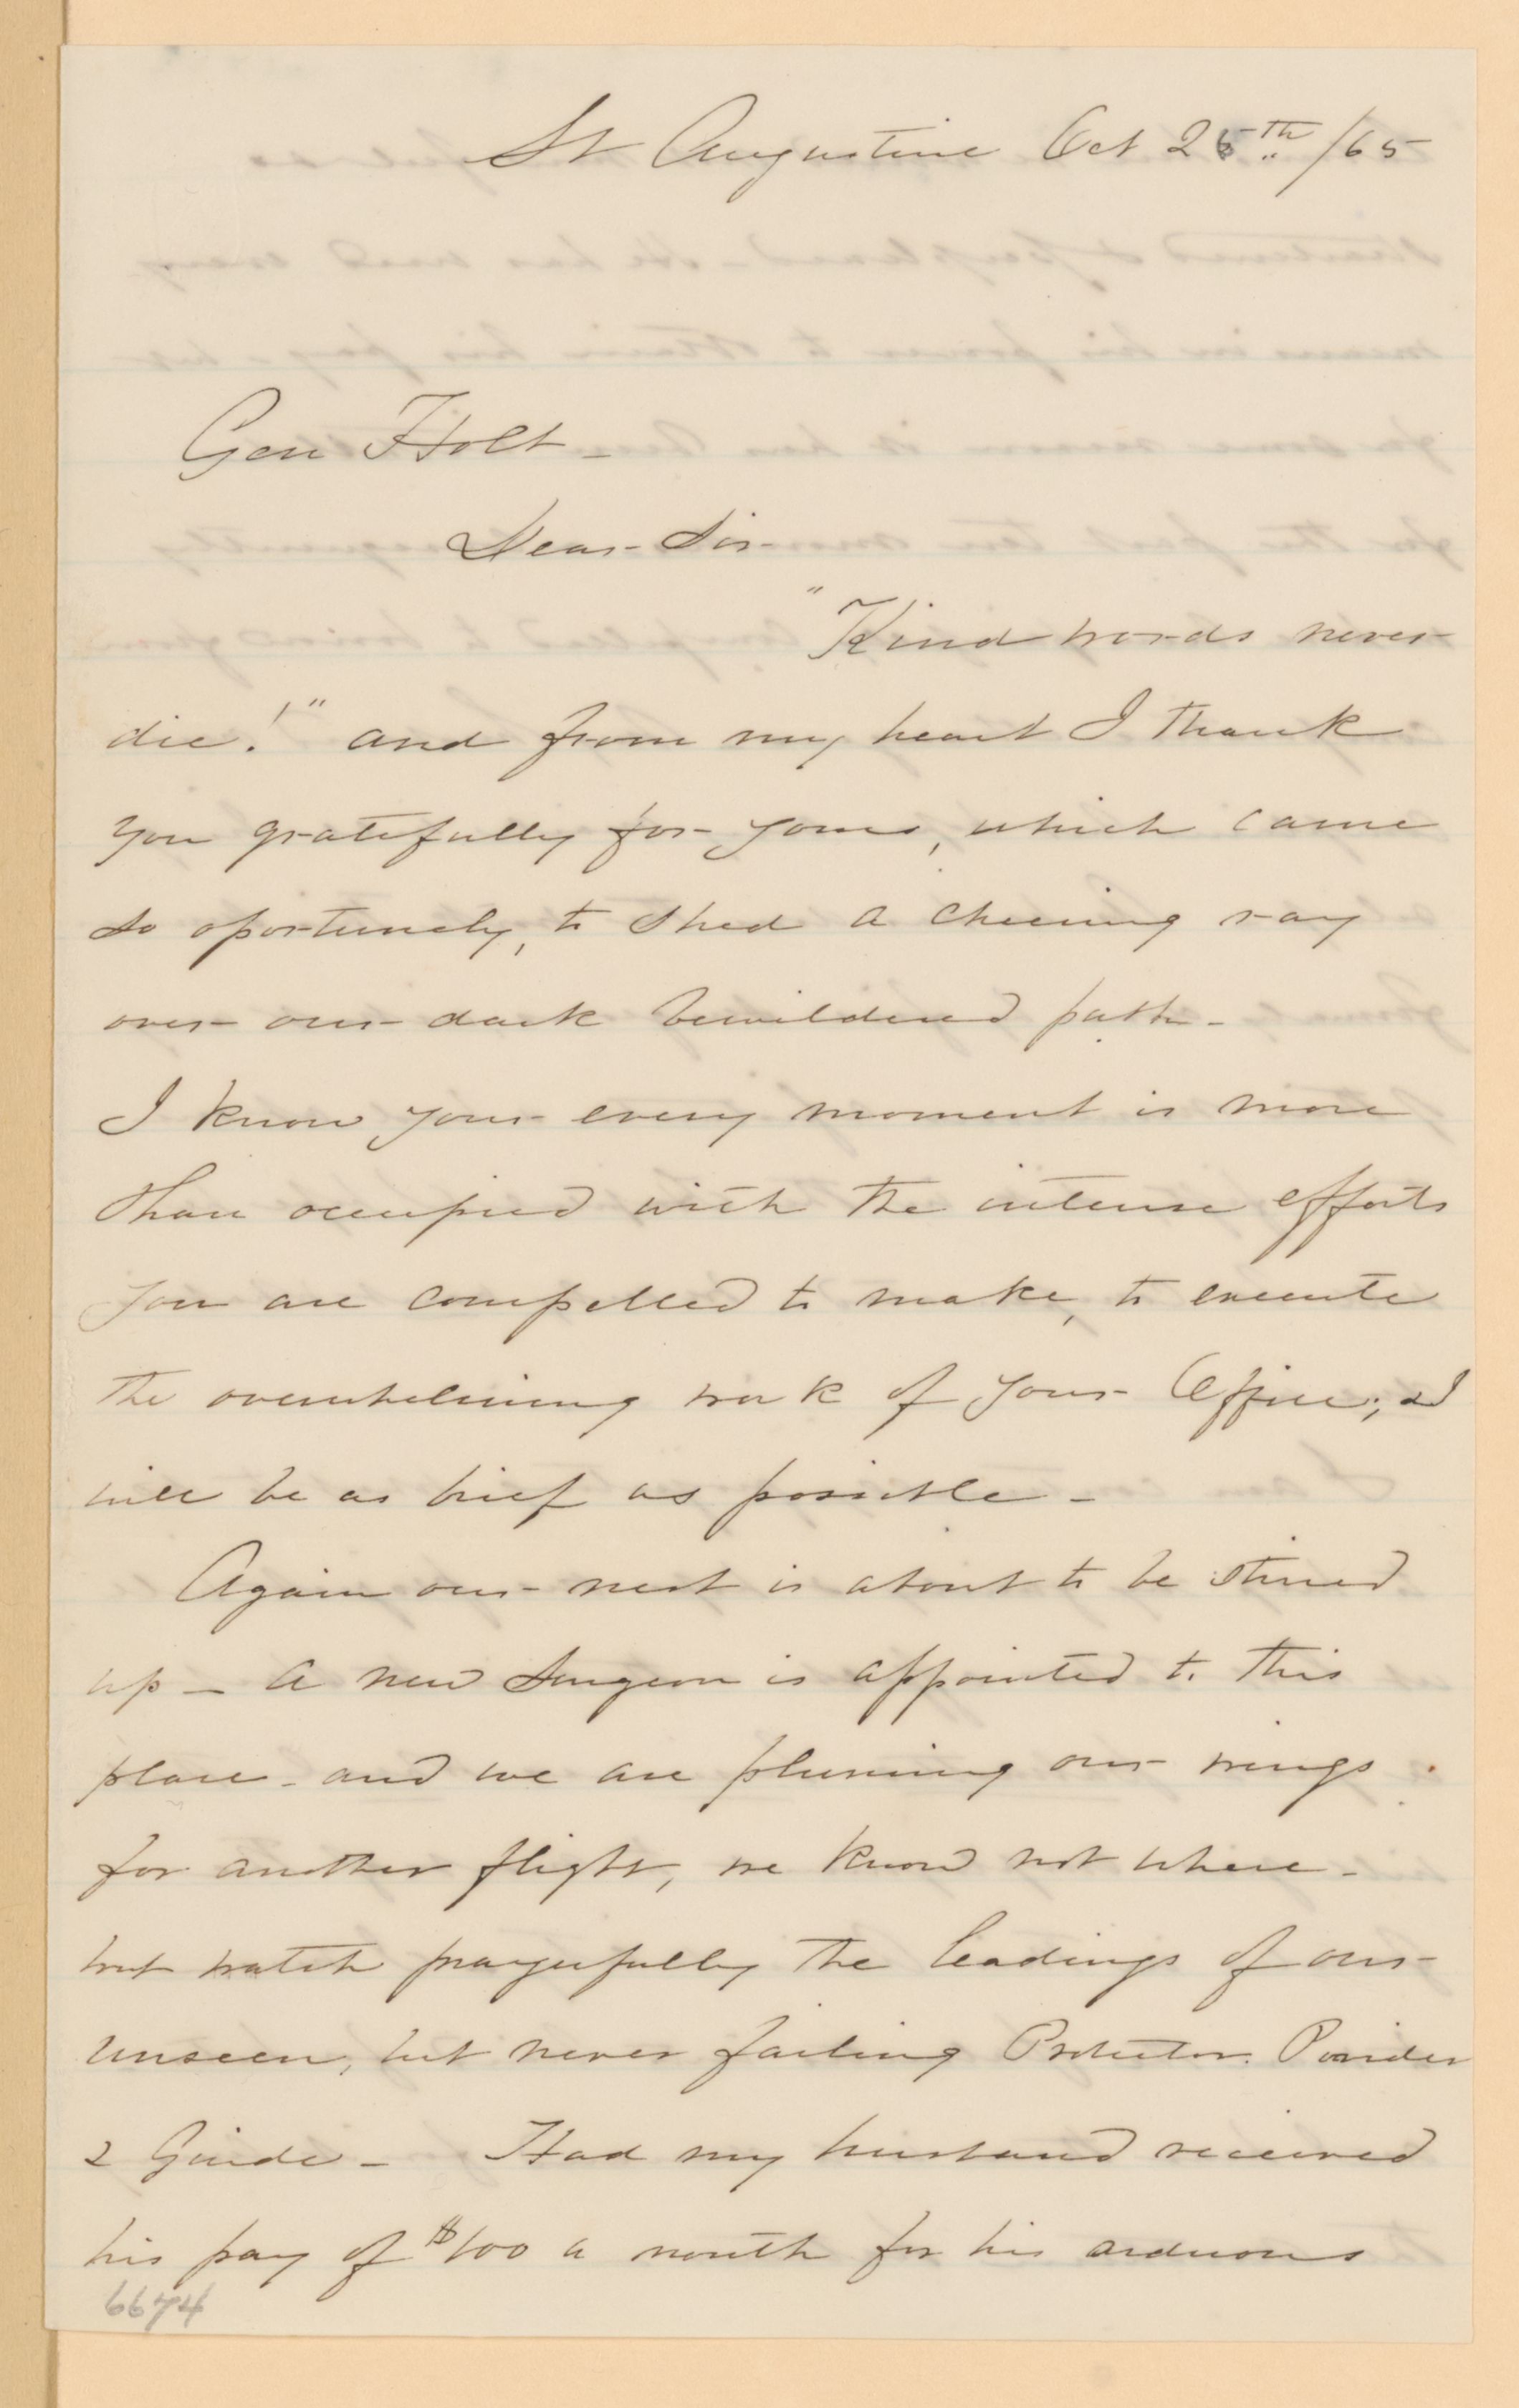 St Augustine Oct 25th /65
Gen Holt -
Dear Sir -
"Kind words never
die!" and from my heart I thank
you gratefully for yours, which came
so oportunely, to shed a cheering ray
over our dark bewildered path -
I know your every moment is more
than occupied with the intense efforts
you are compelled to make, to execute
the overwhelming work of your Office; & I
will be as brief as possible -
Again our nest is about to be stirred
up - A new Surgeon is appointed to this
place - and we are pluming our wings
for another flight, we know not where -
but watch prayerfully the leadings of our
unseen, but never failing Protector. Provider
& Guide - Had my husband received
his pay of $100 a month for his arduous
6674